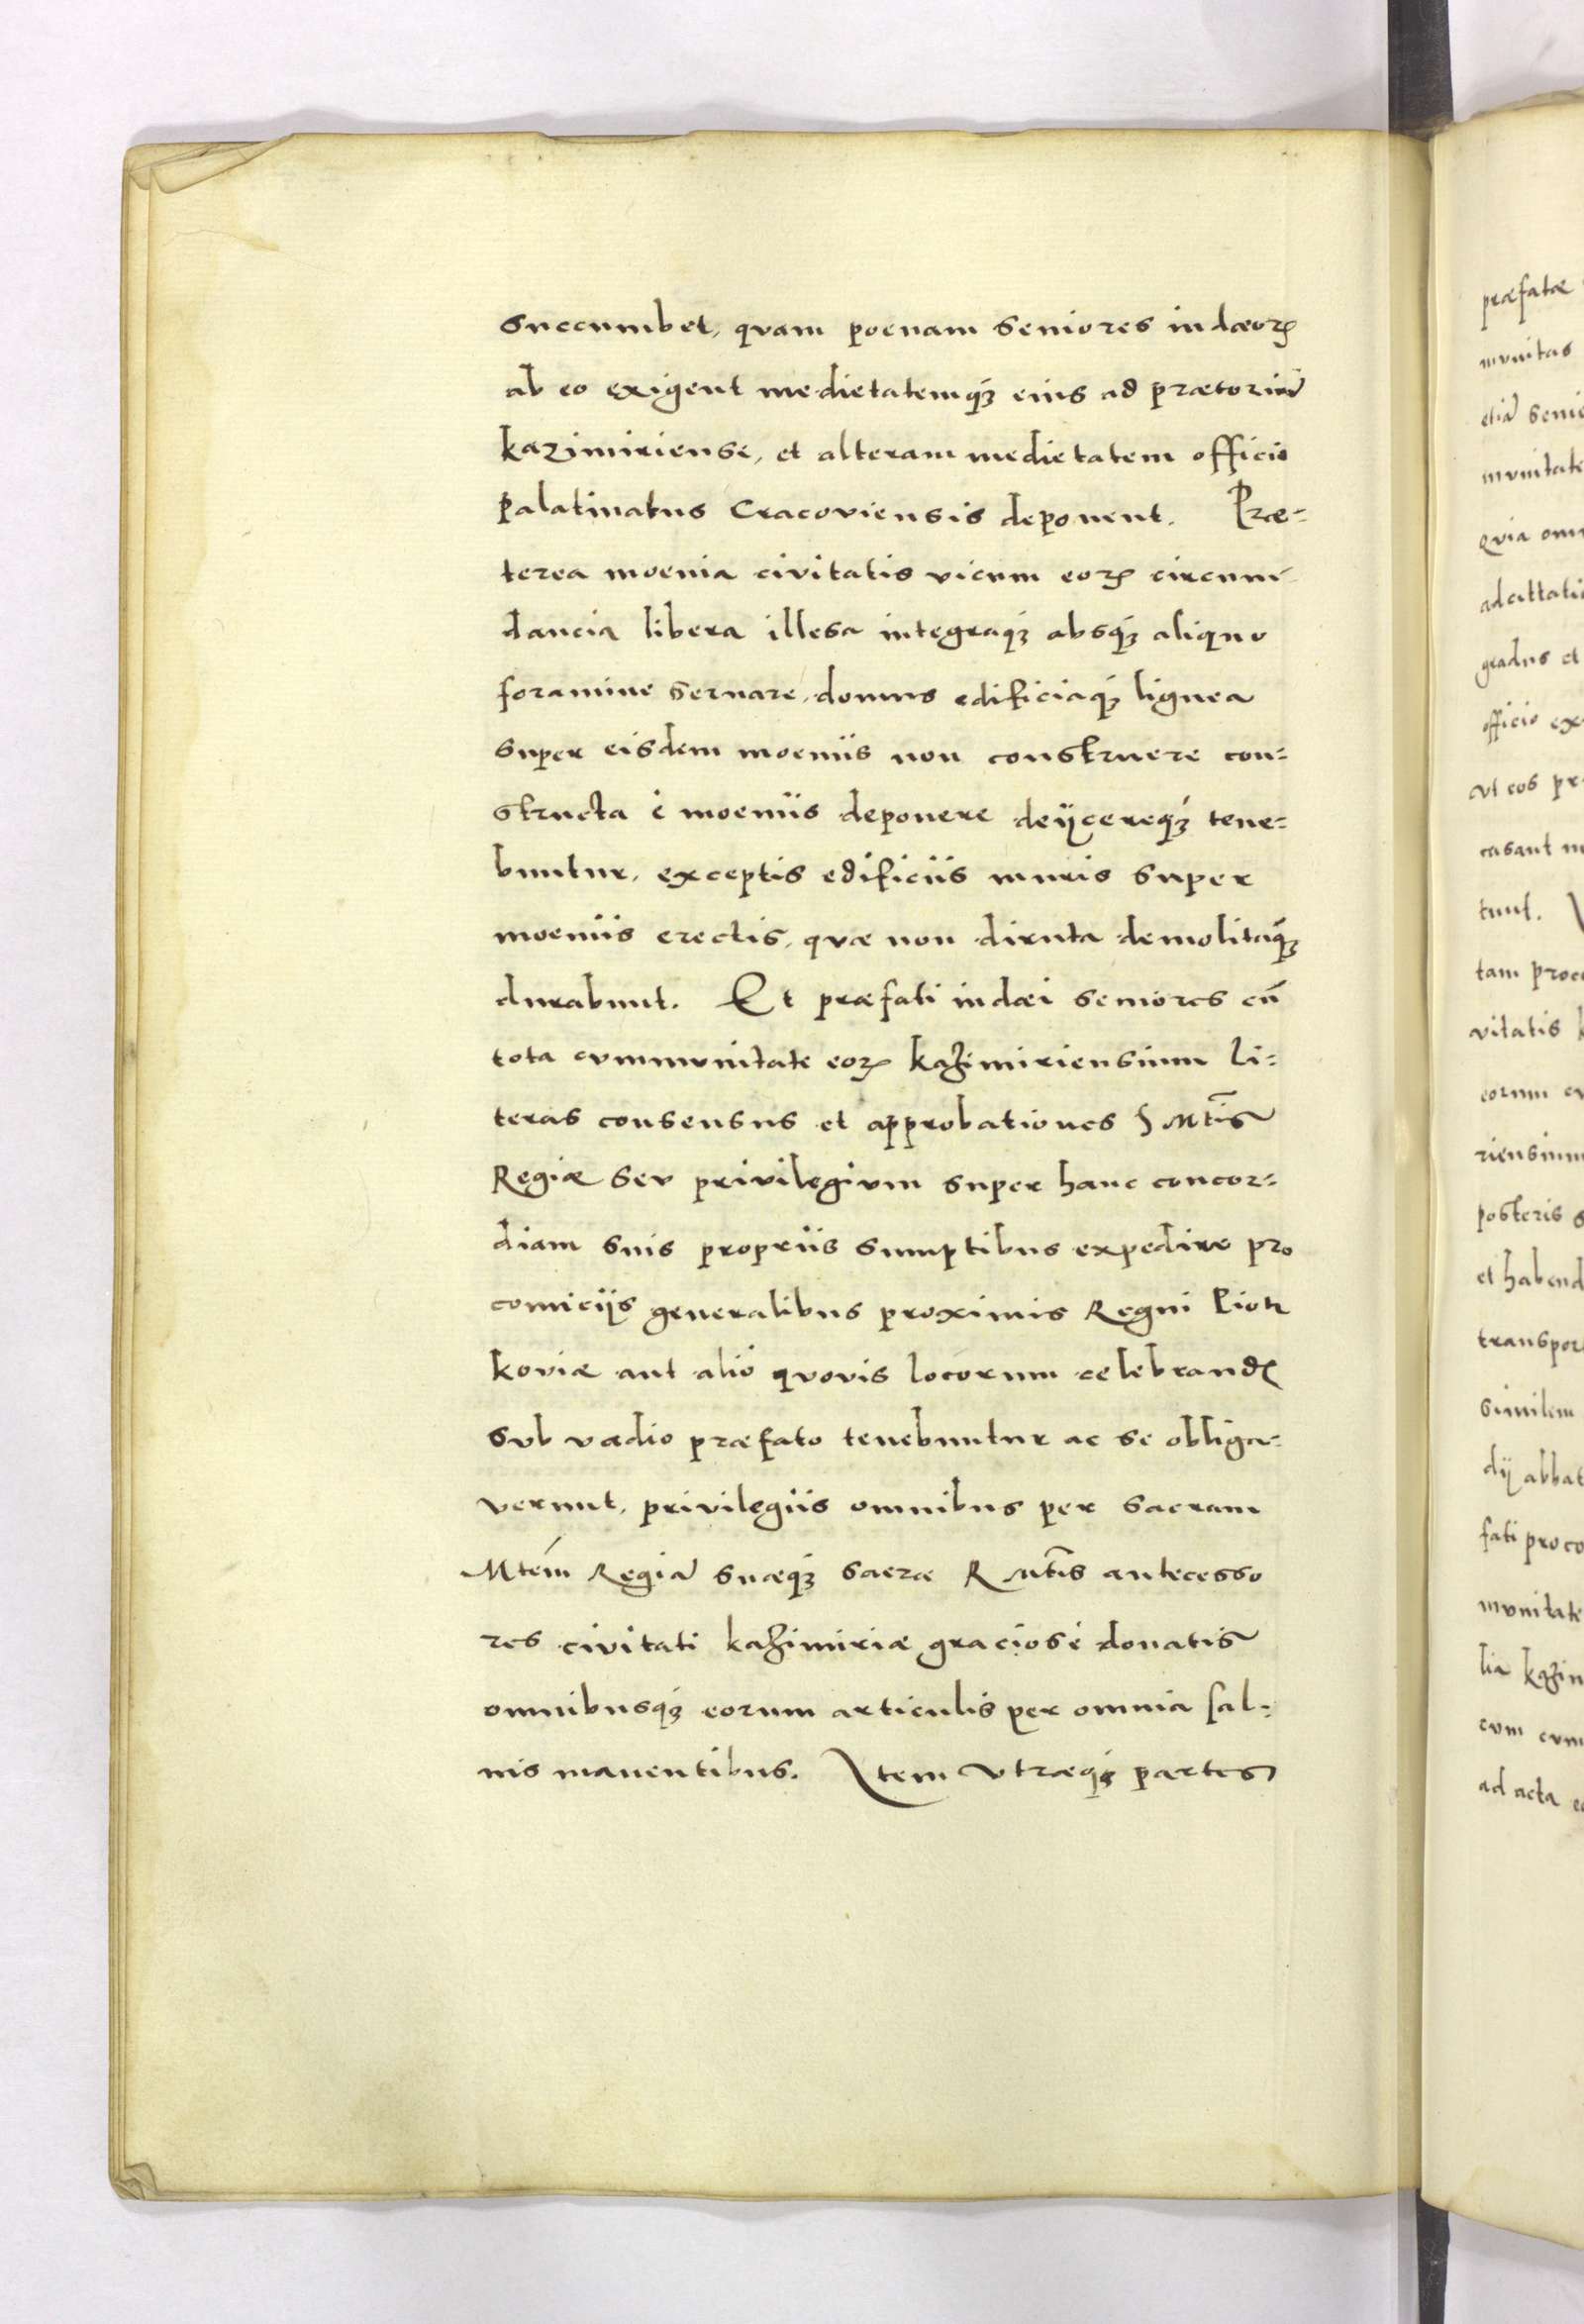 succumbet, quam poenam seniores iudæoꝝ
ab eo exigent medietatemqꝫ eius ad prætoriũ
kazimiriense, et alteram medietatem officio
palatinatus Cracoviensis deponent. Præ-
terea moenia civitatis vicum eoꝝ circum
dancia libera illesa integraqꝫ absqꝫ aliquo
foramine seruare, domus edificiaqꝫ lignea
super eisdem moeniis non construere con-
structa è moeniis deponere deijcereqꝫ tene-
buntur, exceptis edificiis muris super
moeniis erectis, quæ non diruta demolitaqꝫ
durabunt. Et præfati iudæi seniores cũ
tota cummunitate eoꝝ kaʒimiriensium li-
teras consensus et approbationes S Mtis
Regiæ seu privilegium super hanc concor-
diam suis propriis sumptibus expedire pro
comicijs generalibus proximis Regni Piotr
koviæ aut alio quovis locorum celebrandꝭ
sub vadio præfato tenebuntur ac se obliga-
verunt, privilegiis omnibus per sacram
Mtem Regiã suæqꝫ sacræ R Mtis antecesso
res civitati kaʒimiriæ graciosè donatis
omnibusqꝫ eorum articulis per omnia sal-
uis manentibus. Item utræqꝫ partes
præfatæ
munitas
etiã senio
munitate
quia om
ad
gradus et
officio ex
ut eos pr
casant
tunt.
tam proc
vitatis k
eorum cu
riensium
posteris s
et habend
transpor
similem
dij abbat
fati proco
munitate
lia kaʒim
cum cum
ad acta